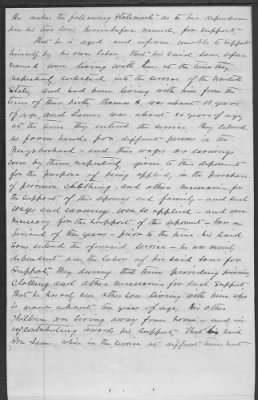 He makes the following statement as to his dependence
on his two sons heretofore named, for support—
That he is aged and infirm unable to support
himself by his own labor. That his said sons before
named were living with him at the time they
respectively enlisted into the service of the United
States, and had been living with him from the
time of their birth, Thomas A. was about 18 years
of age, and James was about 20 years of age
at the time they entered the service. They labored
as farm hands for different persons in the
neighborhood — and their wages as earnings
were by them respectively given to this deponent
for the purpose of being applied, in the purchase
of provision clothing, and other necessaries, for
the support of this deponent and family — and such
wages and earnings were so applied — and were
necessary for the support of this deponent — for a
period of the year — prior to the time his said
sons entered the aforesaid service — he was mainly
dependent on the labor of his said sons for
support, they during that time providing provision
clothing and other necessaries for such support—
That he has only one other son living with him who
is now about ten years of age, his other
children are living away from home — and in
no contributing toward his support. That his said
son James, while in the service at different times sent